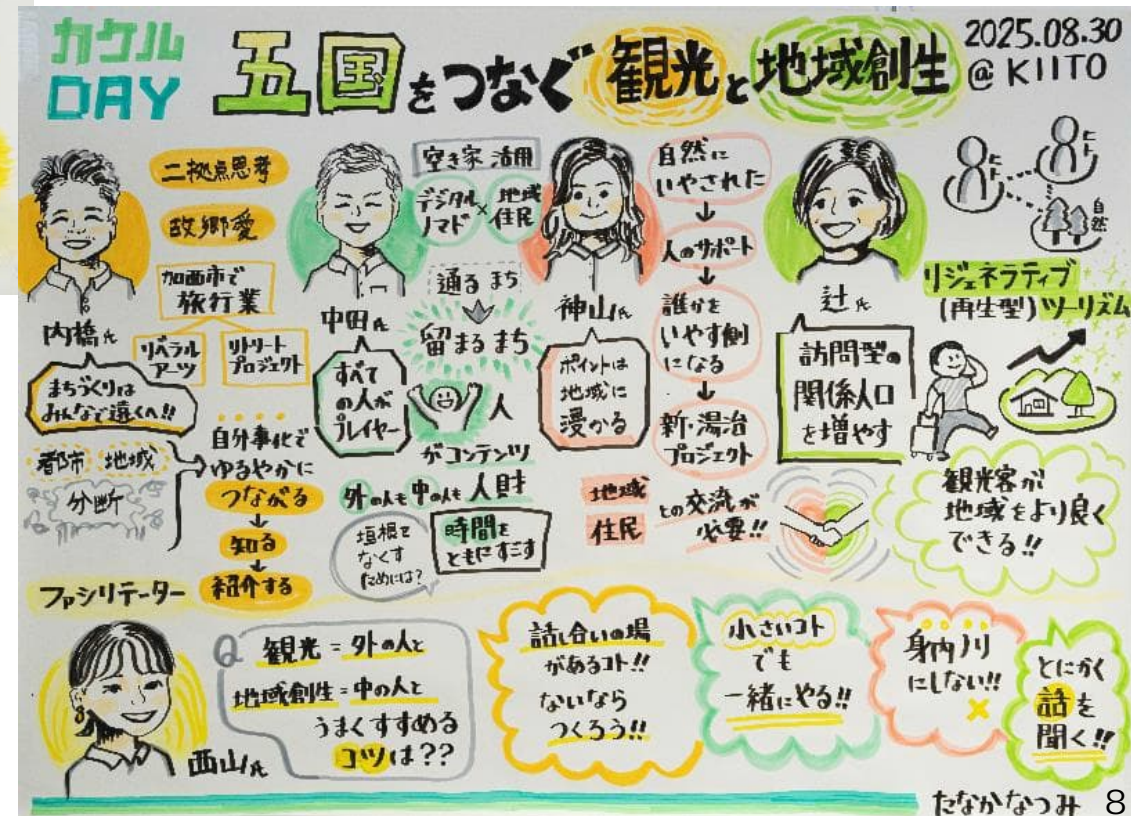 カケル
DAY
五国をつなぐ観光と地域創生
2025.08.30
@KIITO
二拠点思考
故郷愛
加西市で
旅行業
リベラル
アーツ
リトリート
プロジェクト
内橋氏
まちづくりは
みんなで遠くへ!!
都市 地域
分断
自分事化で
ゆるやかに
つながる
知る
紹介する
空き家 活用
デジタル
ノマド
×
地域
住民
通る まち
留まる まち
中田氏
すべて
の人が
プレイヤー
人
がコンテンツ
外の人も中の人も人財
垣根を
なくす
ためには?
時間を
ともにすごす
神山氏
ポイントは
地域に
浸かる
自然に
いやされた
人のサポート
誰かを
いやす側
になる
新・湯治
プロジェクト
地域
住民
との交流が
必要!!
辻氏
訪問型の
関係人口
を増やす
ヒト
ヒト
自然
リジェネラティブ
(再生型)ツーリズム
観光客が
地域をより良く
できる!!
ファシリテーター
西山氏
Q 観光=外の人と
地域創生=中の人と
うまくすすめる
コツは??
話し合いの場
があるコト!!
ないなら
つくろう!!
小さいコト
でも
一緒にやる!!
身内ノリ
にしない!!
とにかく
話を
聞く!!
たなかなつみ
8